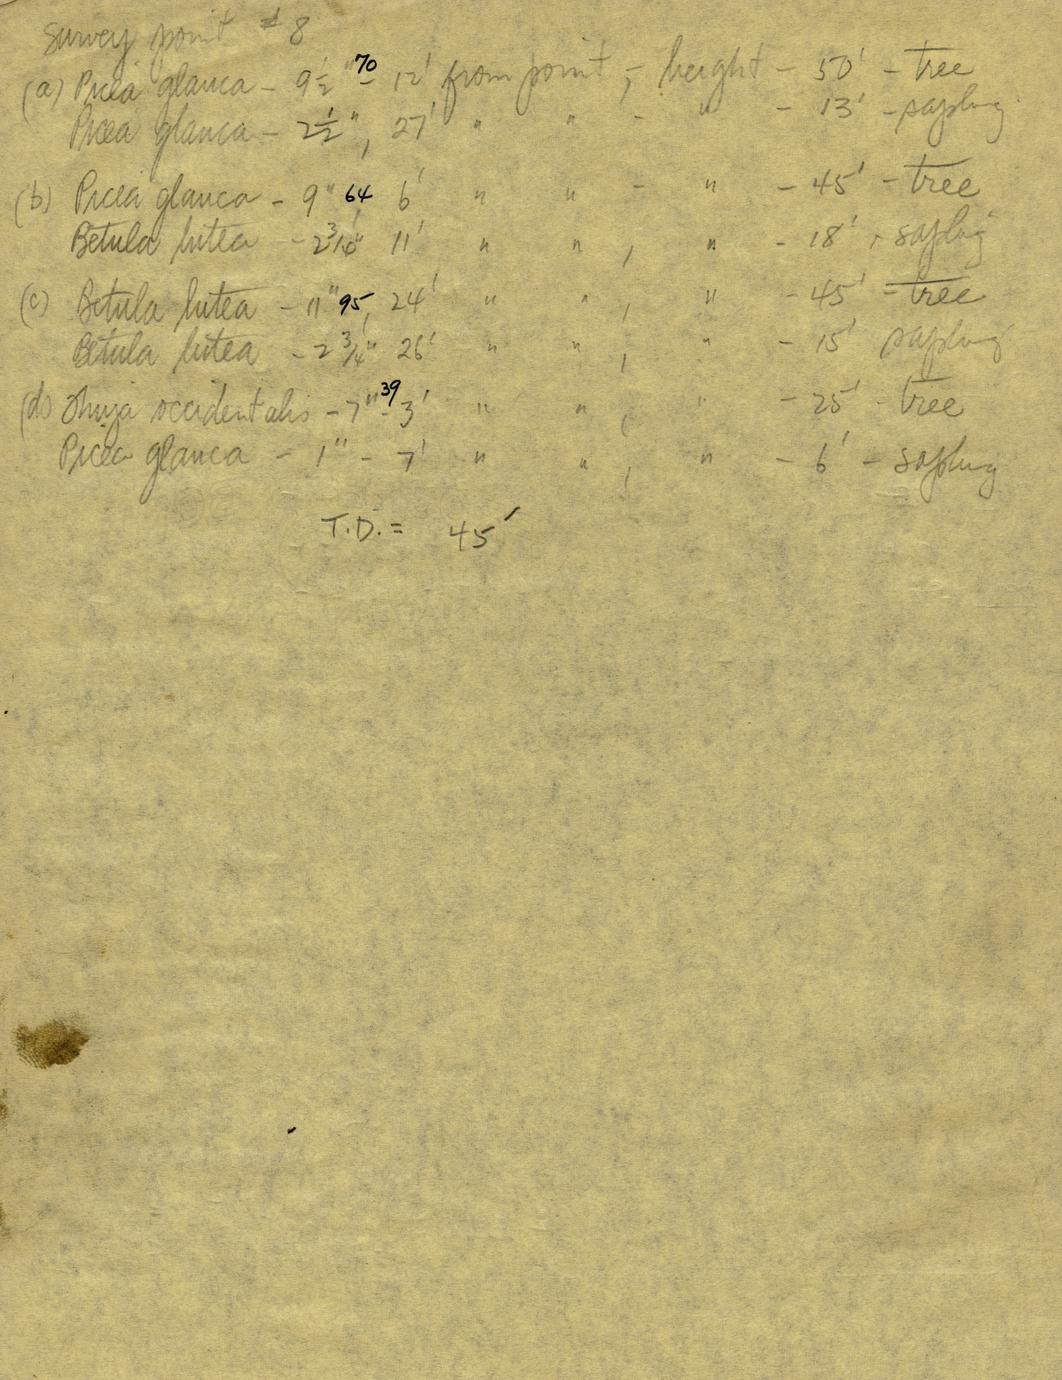 Survey point #8
(a) Picea glauca - 9 1/2" 70 - 12' from point, - height - 50' - tree
Picea glauca - 2 1/2", 27' " " - " - 13' - sapling
(b) Picea glauca - 9" 64 6' " " - " - 45' - tree
Betula lutea - 2 3/4" 11' " " , " - 18' , sapling
(c) Betula lutea - 11" 95, 24' " " , " - 45' - tree
Betula lutea - 2 3/4" 26' " " , " - 15' sapling
(d) Thuja occidentalis - 7" 39 - 3' " " , " - 25' - tree
Picea glauca - 1" - 7' " " , " - 6' - sapling
T.D. = 45'